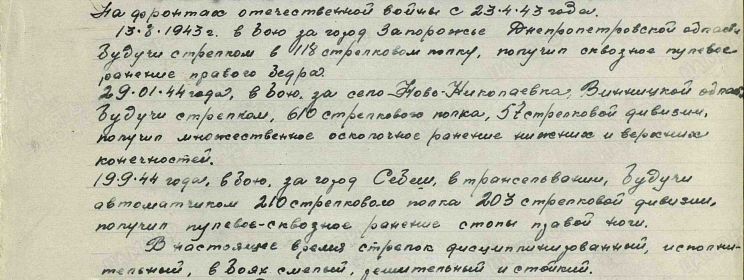 На фронтах отечественной войны с 23.4.43 года.
13.8.1943 г. в бою за город Запорожье Днепропетровской области
будучи стрелком в 118 стрелковом полку, получил сквозное пулевое
ранение правого бедра.
29.01.44 года, в бою за село Ново-Николаевка, Винницкой област
будучи стрелком, 610 стрелкового полка, 57 стрелковой дивизии,
получил множественное осколочное ранение нижних и верхних
конечностей.
19.9.44 года, в бою за город Себеш, в трансельвании, будучи
автоматчиком 210 стрелкового полка 203 стрелковой дивизии,
получил пулевое-сквозное ранение стопы правой ноги.
В настоящее время стрелок дисциплинированный, исполни-
тельный, в боях смелый, решительный и стойкий.